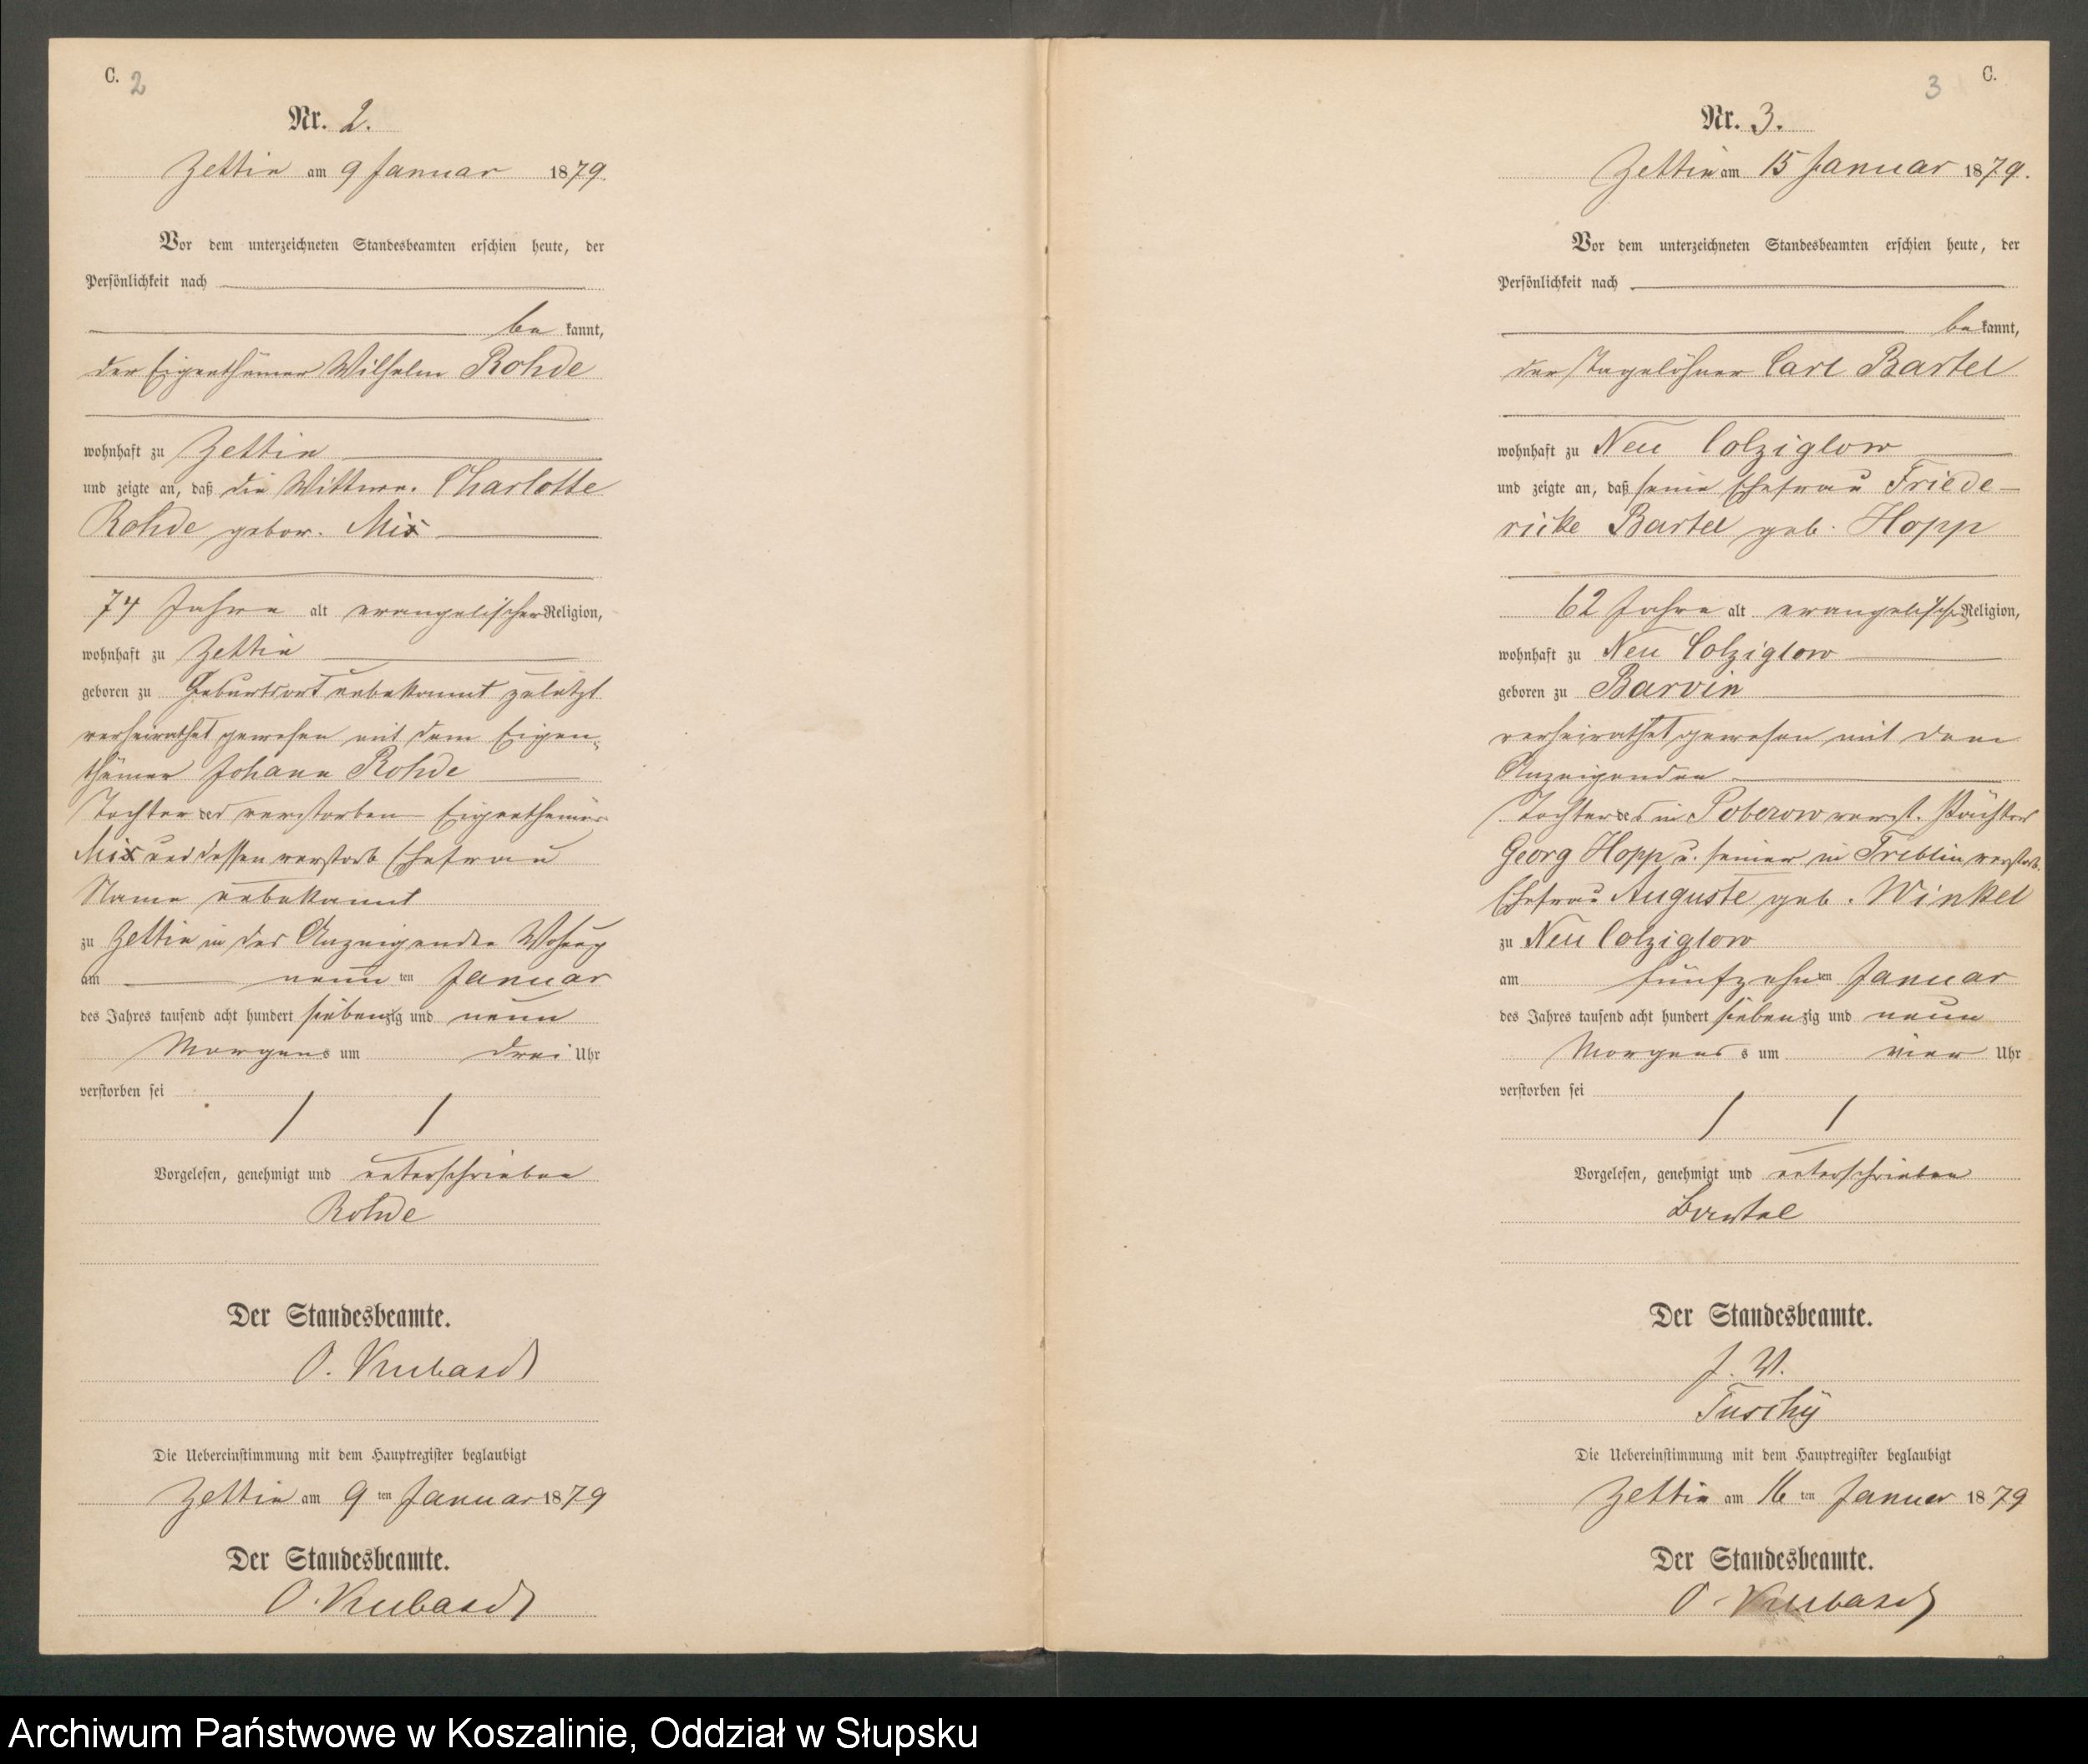 C. 2
Nr. 2.
Zettin am 9 Januar 1879.
Vor dem unterzeichneten Standesbeamten erschien heute, der
Persönlichkeit nach
be kannt,
der Eigenthümer Wilhelm Rohde
wohnhaft zu Zettin
und zeigte an, daß die Wittwe. Charlotte
Rohde gebor. Mix
74 Jahre alt evangelischer Religion,
wohnhaft zu Zettin
geboren zu Geburtsort unbekannt zuletzt
verheirathet gewesen mit dem Eigen-
thümer Johann Rohde
Tochter des verstorben Eigenthümer
Mix und dessen verstorb Ehefrau
Name unbekannt
zu Zettin in des Anzeigenden Wohung
am neun ten Januar
des Jahres tausend acht hundert siebenzig und neun
Morgens um drei Uhr
verstorben sei
Vorgelesen, genehmigt und unterschrieben
Rohde
Der Standesbeamte.
O. Kubasch
Die Uebereinstimmung mit dem Hauptregister beglaubigt
Zettin am 9 ten Januar 1879
Der Standesbeamte.
O. Kubasch
3 C.
Nr. 3.
Zettin am 15 Januar 1879.
Vor dem unterzeichneten Standesbeamten erschien heute, der
Persönlichkeit nach
be kannt,
der Tagelöhner Carl Bartel
wohnhaft zu Neu Colziglow
und zeigte an, daß seine Ehefrau Friede-
ricke Bartel geb. Hopp
62 Jahre alt evangelischer Religion,
wohnhaft zu Neu Colziglow
geboren zu Barvin
verheirathet gewesen mit dem
Anzeigenden
Tochter des in Poberow verst. Pächter
Georg Hopp u. seiner in Treblin verstorb.
Ehefrau Auguste geb. Winkel
zu Neu Colziglow
am fünfzehn ten Januar
des Jahres tausend acht hundert siebenzig und neun
Morgens s um vier Uhr
verstorben sei
Vorgelesen, genehmigt und unterschrieben
Bartel
Der Standesbeamte.
J. V.
Tuschy
Die Uebereinstimmung mit dem Hauptregister beglaubigt
Zettin am 16 ten Januar 1879
Der Standesbeamte.
O. Kubasch
Archiwum Państwowe w Koszalinie, Oddział w Słupsku